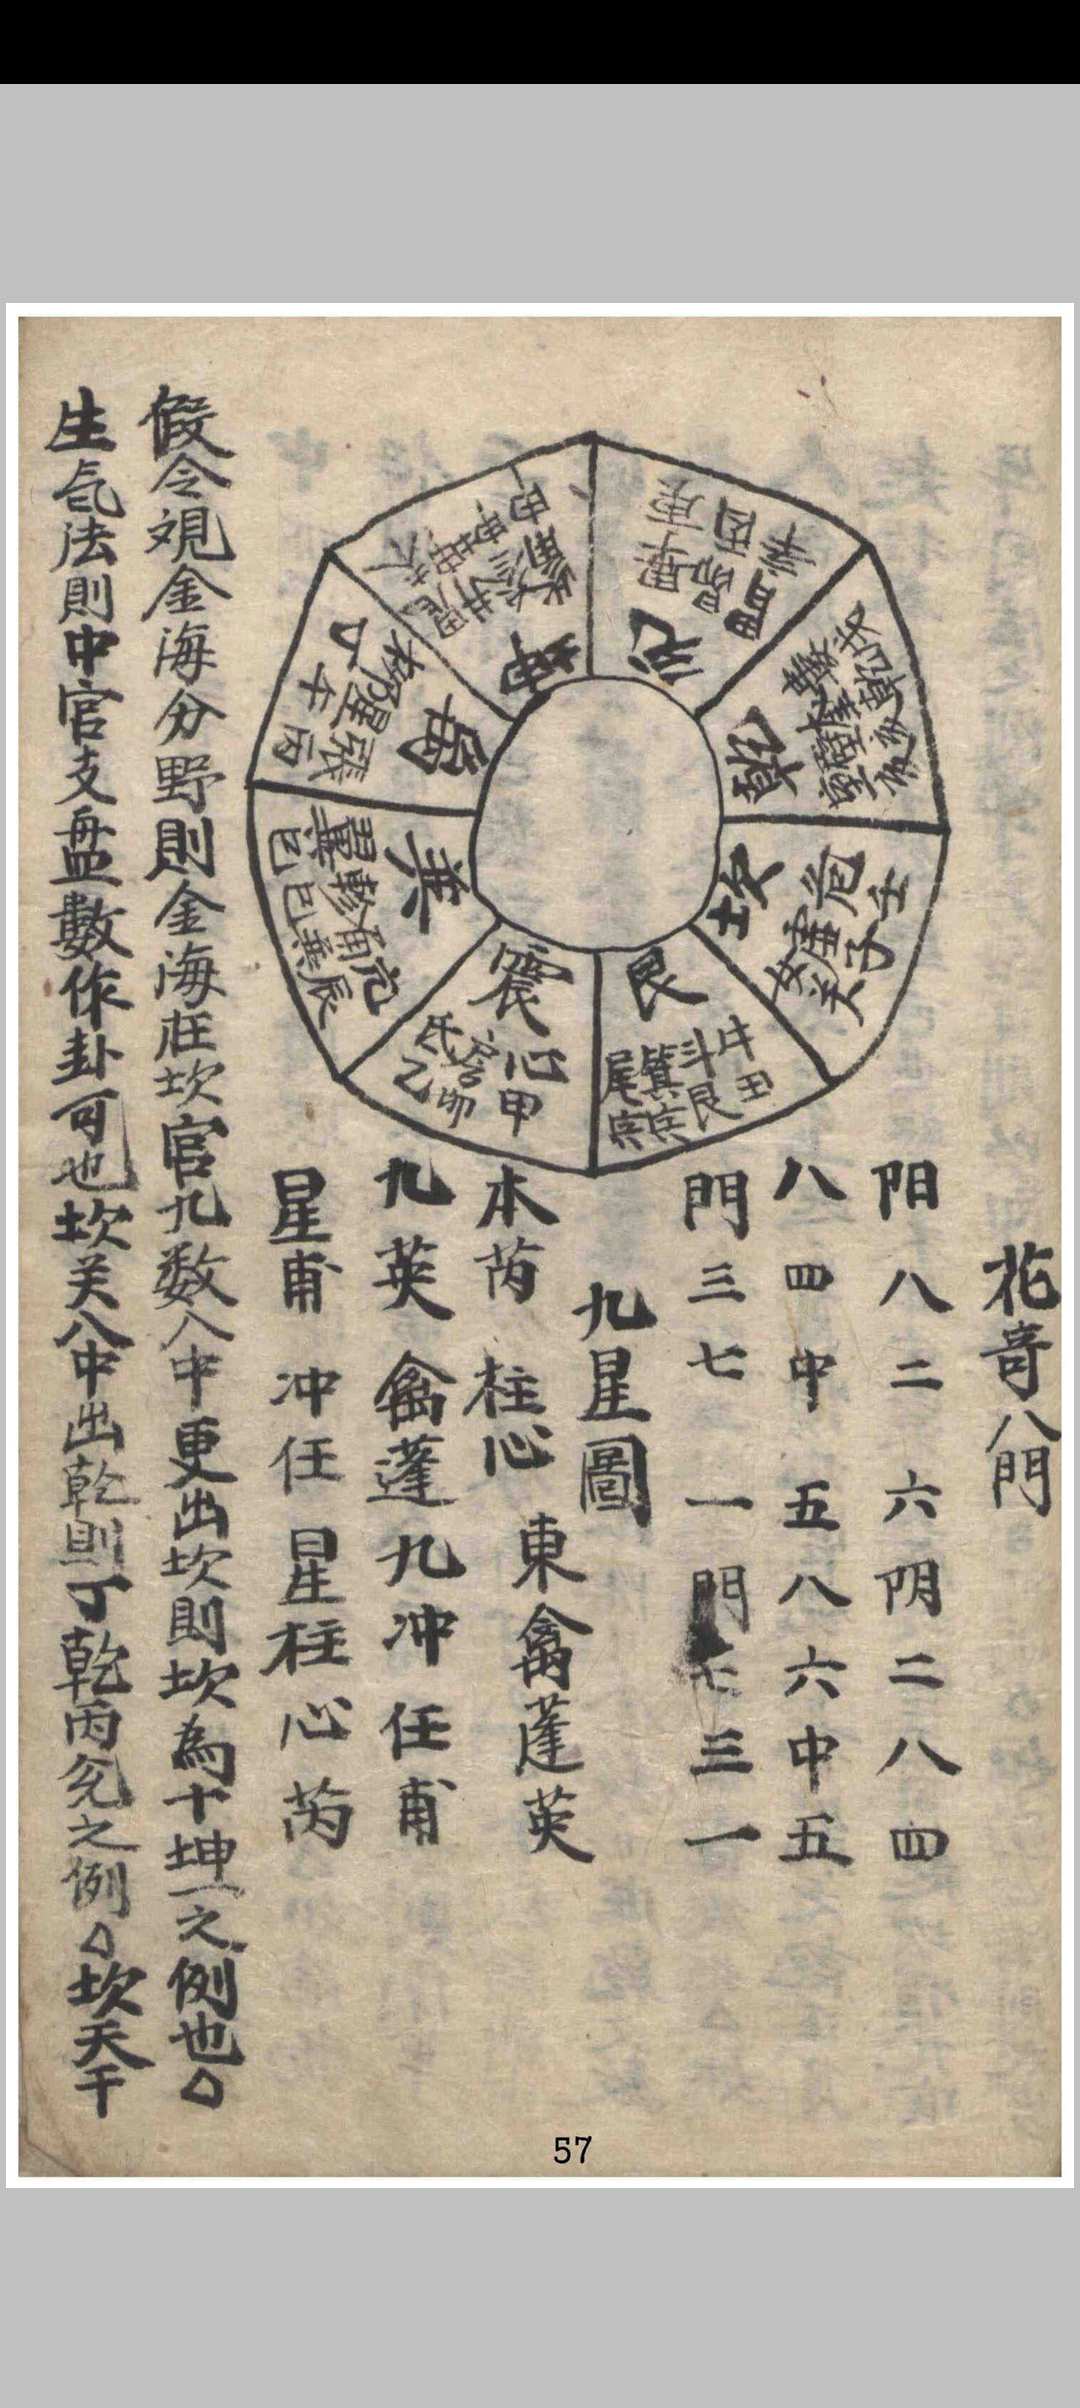 花奇八門
阳八二六阴二八四
八四中五八六中五
門三七一門七三一
九星圖
東禽蓬英
本芮柱心
九英禽蓬九冲任甫
星甫冲任星柱心芮
乾
坎
壬子危
艮
斗牛
箕艮
尾
震
心甲
卯
氐乙
巳巳
翼
辰
午丙
星張
丁
坤
井
庚
昴
畢
假令覌金海分野則金海在坎官九数入中更出坎則坎為十坤一之例也
生氣法則中官支盘數作卦可也坎关八中出乾則丁乾丙兊之例坎天干
57